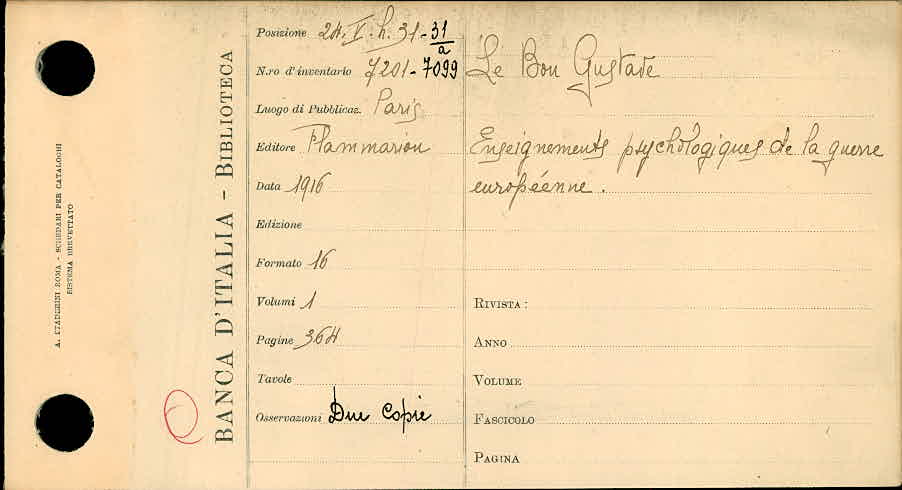 A. STADERINI ROMA - SCHEDARI PER CATALOGHI
SISTEMA BREVETTATO
BANCA D'ITALIA - BIBLIOTECA
Posizione 24. V. h. 31 - 31/a
N.ro d'inventario 7201 - 7099
Luogo di Pubblicaz. Paris
Editore Flammarion
Data 1916
Edizione
Formato 16
Volumi 1
Pagine 364
Tavole
Osservazioni Due Copie
Le Bon Gustave
Enseignements psychologiques de la guerre
européenne.
RIVISTA:
ANNO
VOLUME
FASCICOLO
PAGINA